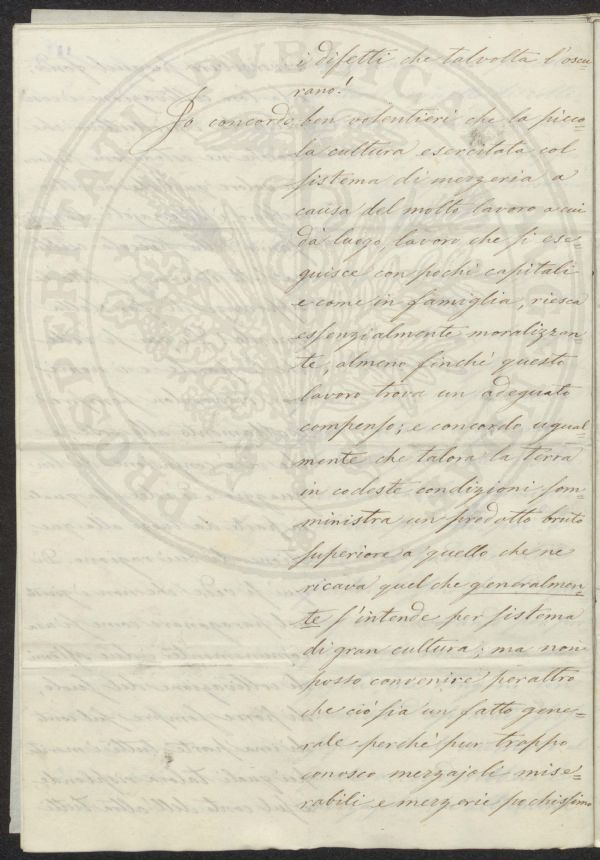 i difetti che talvolta l'oscu=
rano!
Io concordo ben volentieri che la picco=
la cultura esercitata col
sistema di mezzeria a
causa del molto lavoro a cui
dà luogo, lavoro che si ese=
guisce con pochi capitali
e come in famiglia, riesca
essenzialmente moralizzan=
te, almeno finchè questo
lavoro trova un adeguato
compenso; e concordo ugual=
mente che talora la terra
in codeste condizioni som=
ministra un prodotto bruto
superiore a quello che ne
ricava quel che generalmen=
te s'intende per sistema
di gran cultura; ma non
posso convenire peraltro
che ciò sia un fatto gene=
rale perchè pur troppo
conosco mezzajoli mise=
rabili e mezzerie pochissimo
PROSPERITATI PVBLICAE